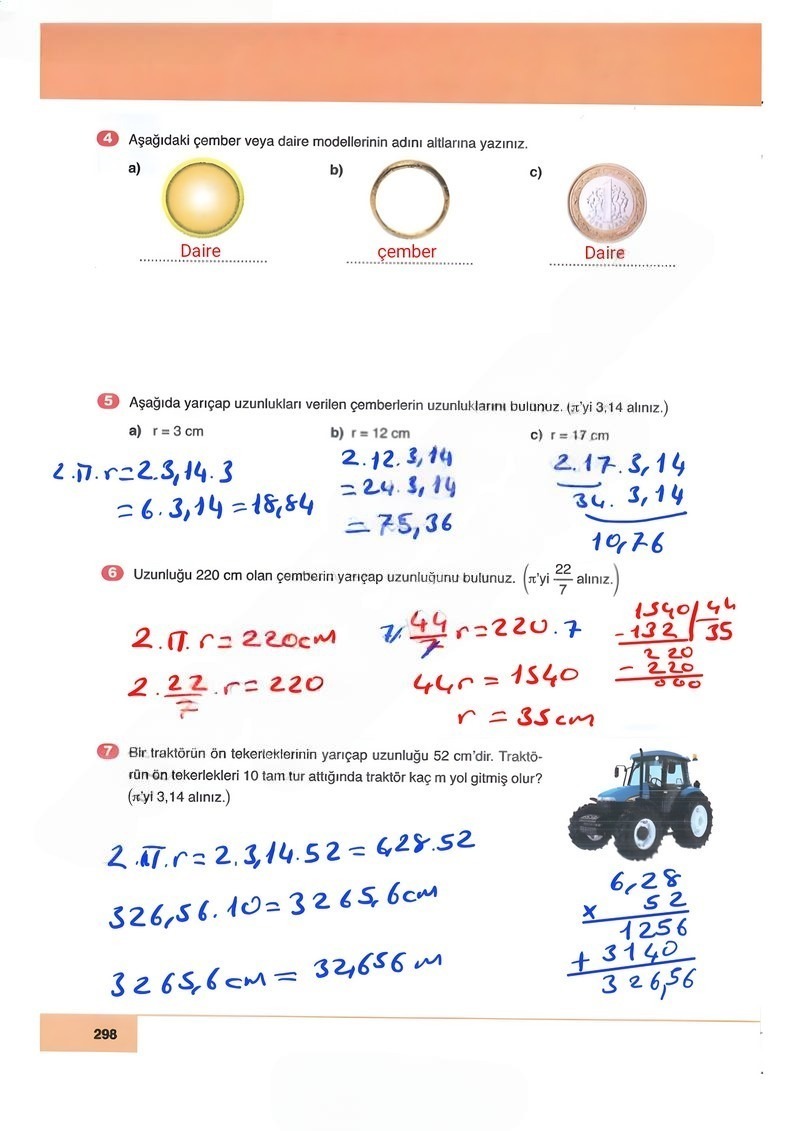 4 Aşağıdaki çember veya daire modellerinin adını altlarına yazınız.
a) b) c)
Daire çember Daire
5 Aşağıda yarıçap uzunlukları verilen çemberlerin uzunluklarını bulunuz. (π'yi 3,14 alınız.)
a) r = 3 cm b) r = 12 cm c) r = 17 cm
2.π.r=2.3,14.3
=6.3,14=18,84
2.12.3,14
=24.3,14
=75,36
2.17.3,14
34.3,14
10,76
6 Uzunluğu 220 cm olan çemberin yarıçap uzunluğunu bulunuz. (π'yi 22/7 alınız.)
2.π.r=220cm
2.22/7.r=220
7.44/7 r=220.7
44r=1540
r=35cm
1540 44
-132 35
220
-220
000
7 Bir traktörün ön tekerleklerinin yarıçap uzunluğu 52 cm'dir. Traktö-
rün ön tekerlekleri 10 tam tur attığında traktör kaç m yol gitmiş olur?
(π'yi 3,14 alınız.)
2.π.r=2.3,14.52=6,28.52
326,56.10=3265,6cm
3265,6cm=32,656m
6,28
x 52
1256
+3140
326,56
298